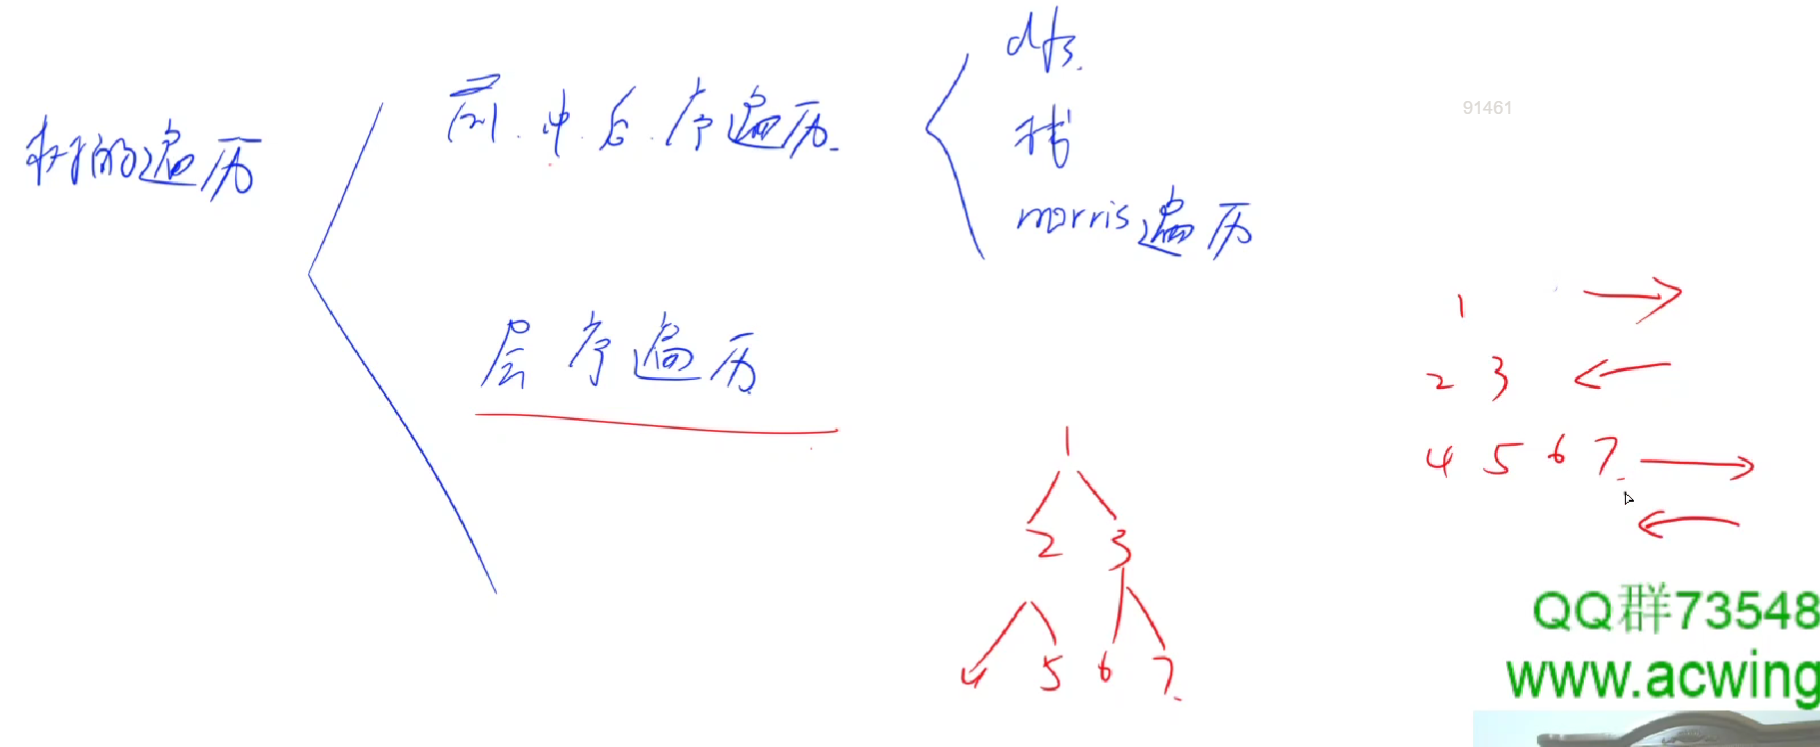 树的遍历
前.中.后.序遍历.
dfs.
栈
morris遍历
层序遍历
91461
1
2 3
4 5 6 7.
1
2 3
4 5 6 7.
QQ群73548
www.acwing